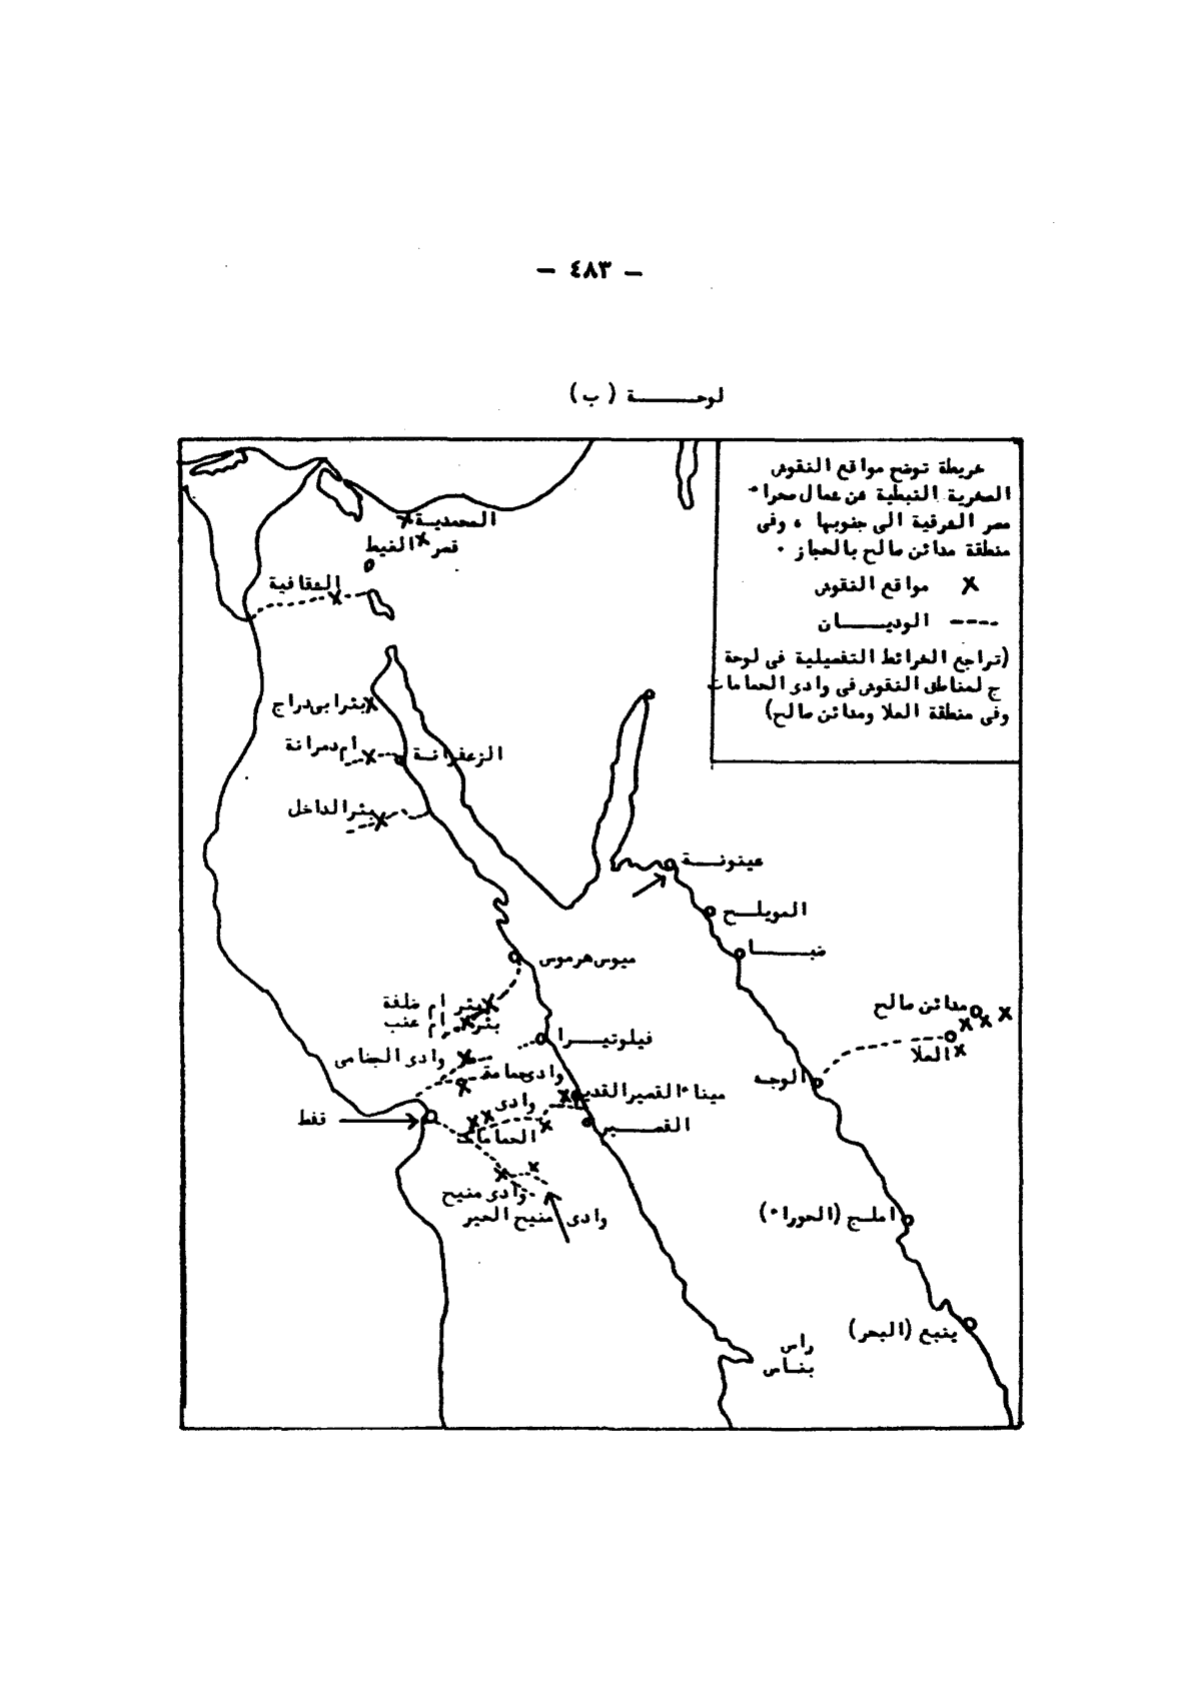 — ٤٨٣ —
لوحـــــة (ب)
خريطة توضح مواقع النقوش
الصخرية النبطية من شمال صحراء
مصر الشرقية الى جنوبها ، وفى
منطقة مدائن صالح بالحجاز .
x مواقع النقوش
---- الوديـــــان
(تراجع الخرائط التفصيلية فى لوحة
ج لمناطق النقوش فى وادى الحمامات
وفى منطقة العلا ومدائن صالح)
المحمديـة
قصر الغيط
الشقافية
بئرابى دراج
ام دمرانة
الزعفرانـة
بئرالداخل
عينونـــة
المويلـــح
ضبـــــا
ميوس هرموس
مدائن صالح
بئر ام ضلفة
بئر ام عنب
فيلوتيـــرا
العلا
وادى الجنامى
وادى حمامة
الوجـه
ميناء القصير القديم
وادى
الحمامات
قفط
القصـــير
وادى منيح
وادى منيح الحير
املـج (الحوراء)
ينبع (البحر)
راس
بنـاس